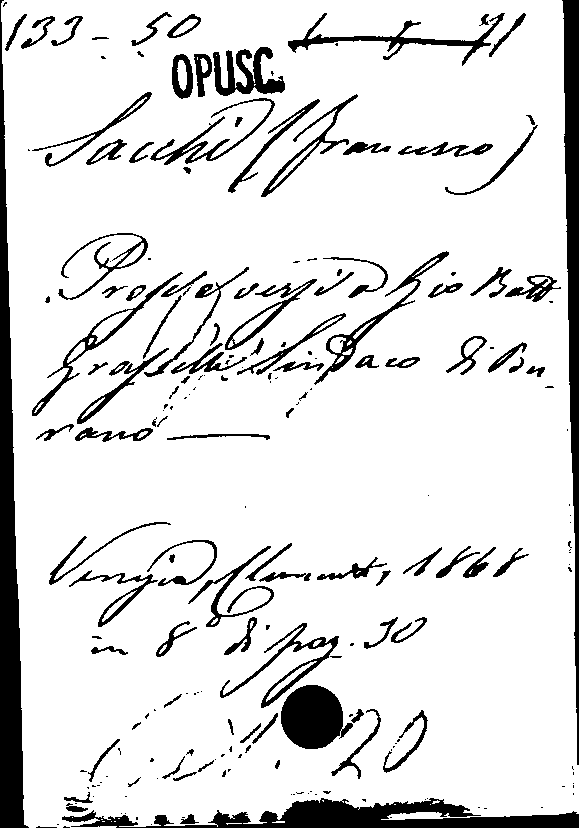 133 - 50 4 5 71
OPUSC.
Sacchi (Francesco)
Prose e versi a Gio Batt.
Grasselli Sindaco di Bu-
rano
Venezia, Clement, 1868
in 8° di pag. 30
20